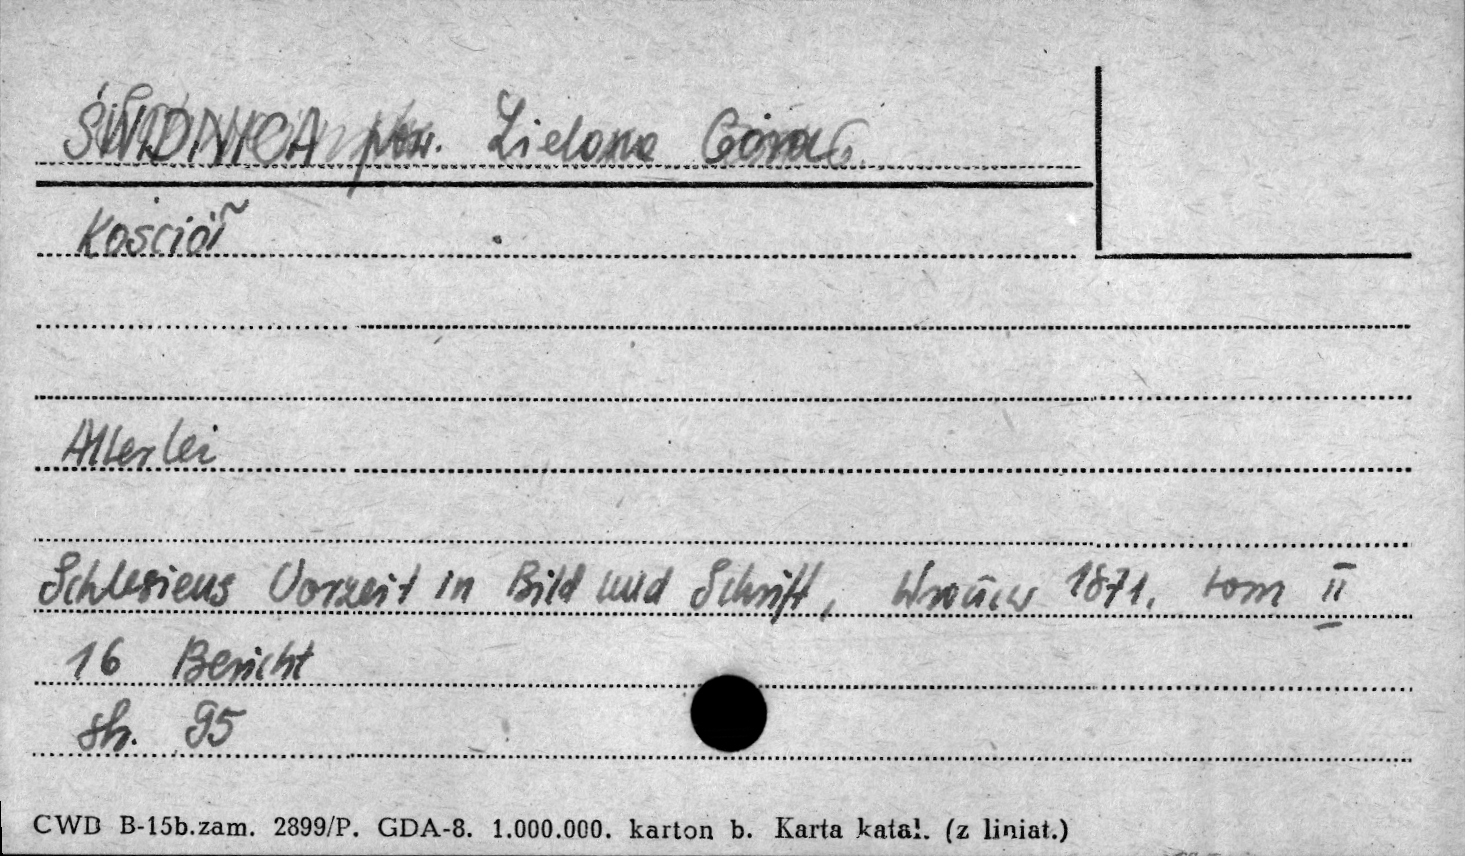 ŚWIDNICA pow. Zielona Góra
Kościół
Allerlei
Schlesiens Vorzeit in Bild und Schrift, Wrocław 1871. tom II
16 Bericht
str. 95
CWD B-15b.zam. 2899/P. GDA-8. 1.000.000. karton b. Karta katal. (z liniat.)